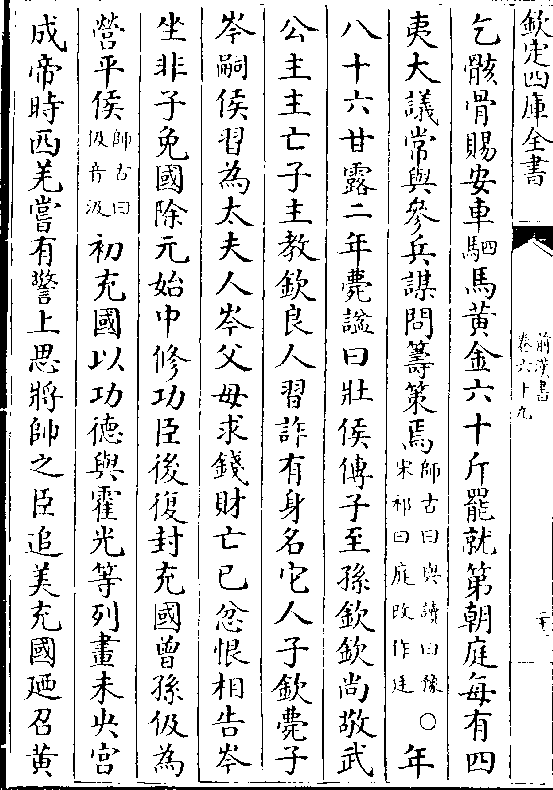 欽定四庫全書
前漢書
卷六十九
乞骸骨賜安車駟馬黃金六十斤罷就第朝庭每有四
夷大議常與參兵謀問籌策焉師古曰與讀曰豫○宋祁曰庭改作廷年
八十六甘露二年薨諡曰壯侯傳子至孫欽欽尚敬武
公主主亡子主教欽良人習詐有身名它人子欽薨子
岑嗣侯習為太夫人岑父母求錢財亡已忿恨相告岑
坐非子免國除元始中修功臣後復封充國曾孫伋為
營平侯師古曰伋音汲初充國以功德與霍光等列畫未央宮
成帝時西羌嘗有警上思將帥之臣追美充國廼召黃